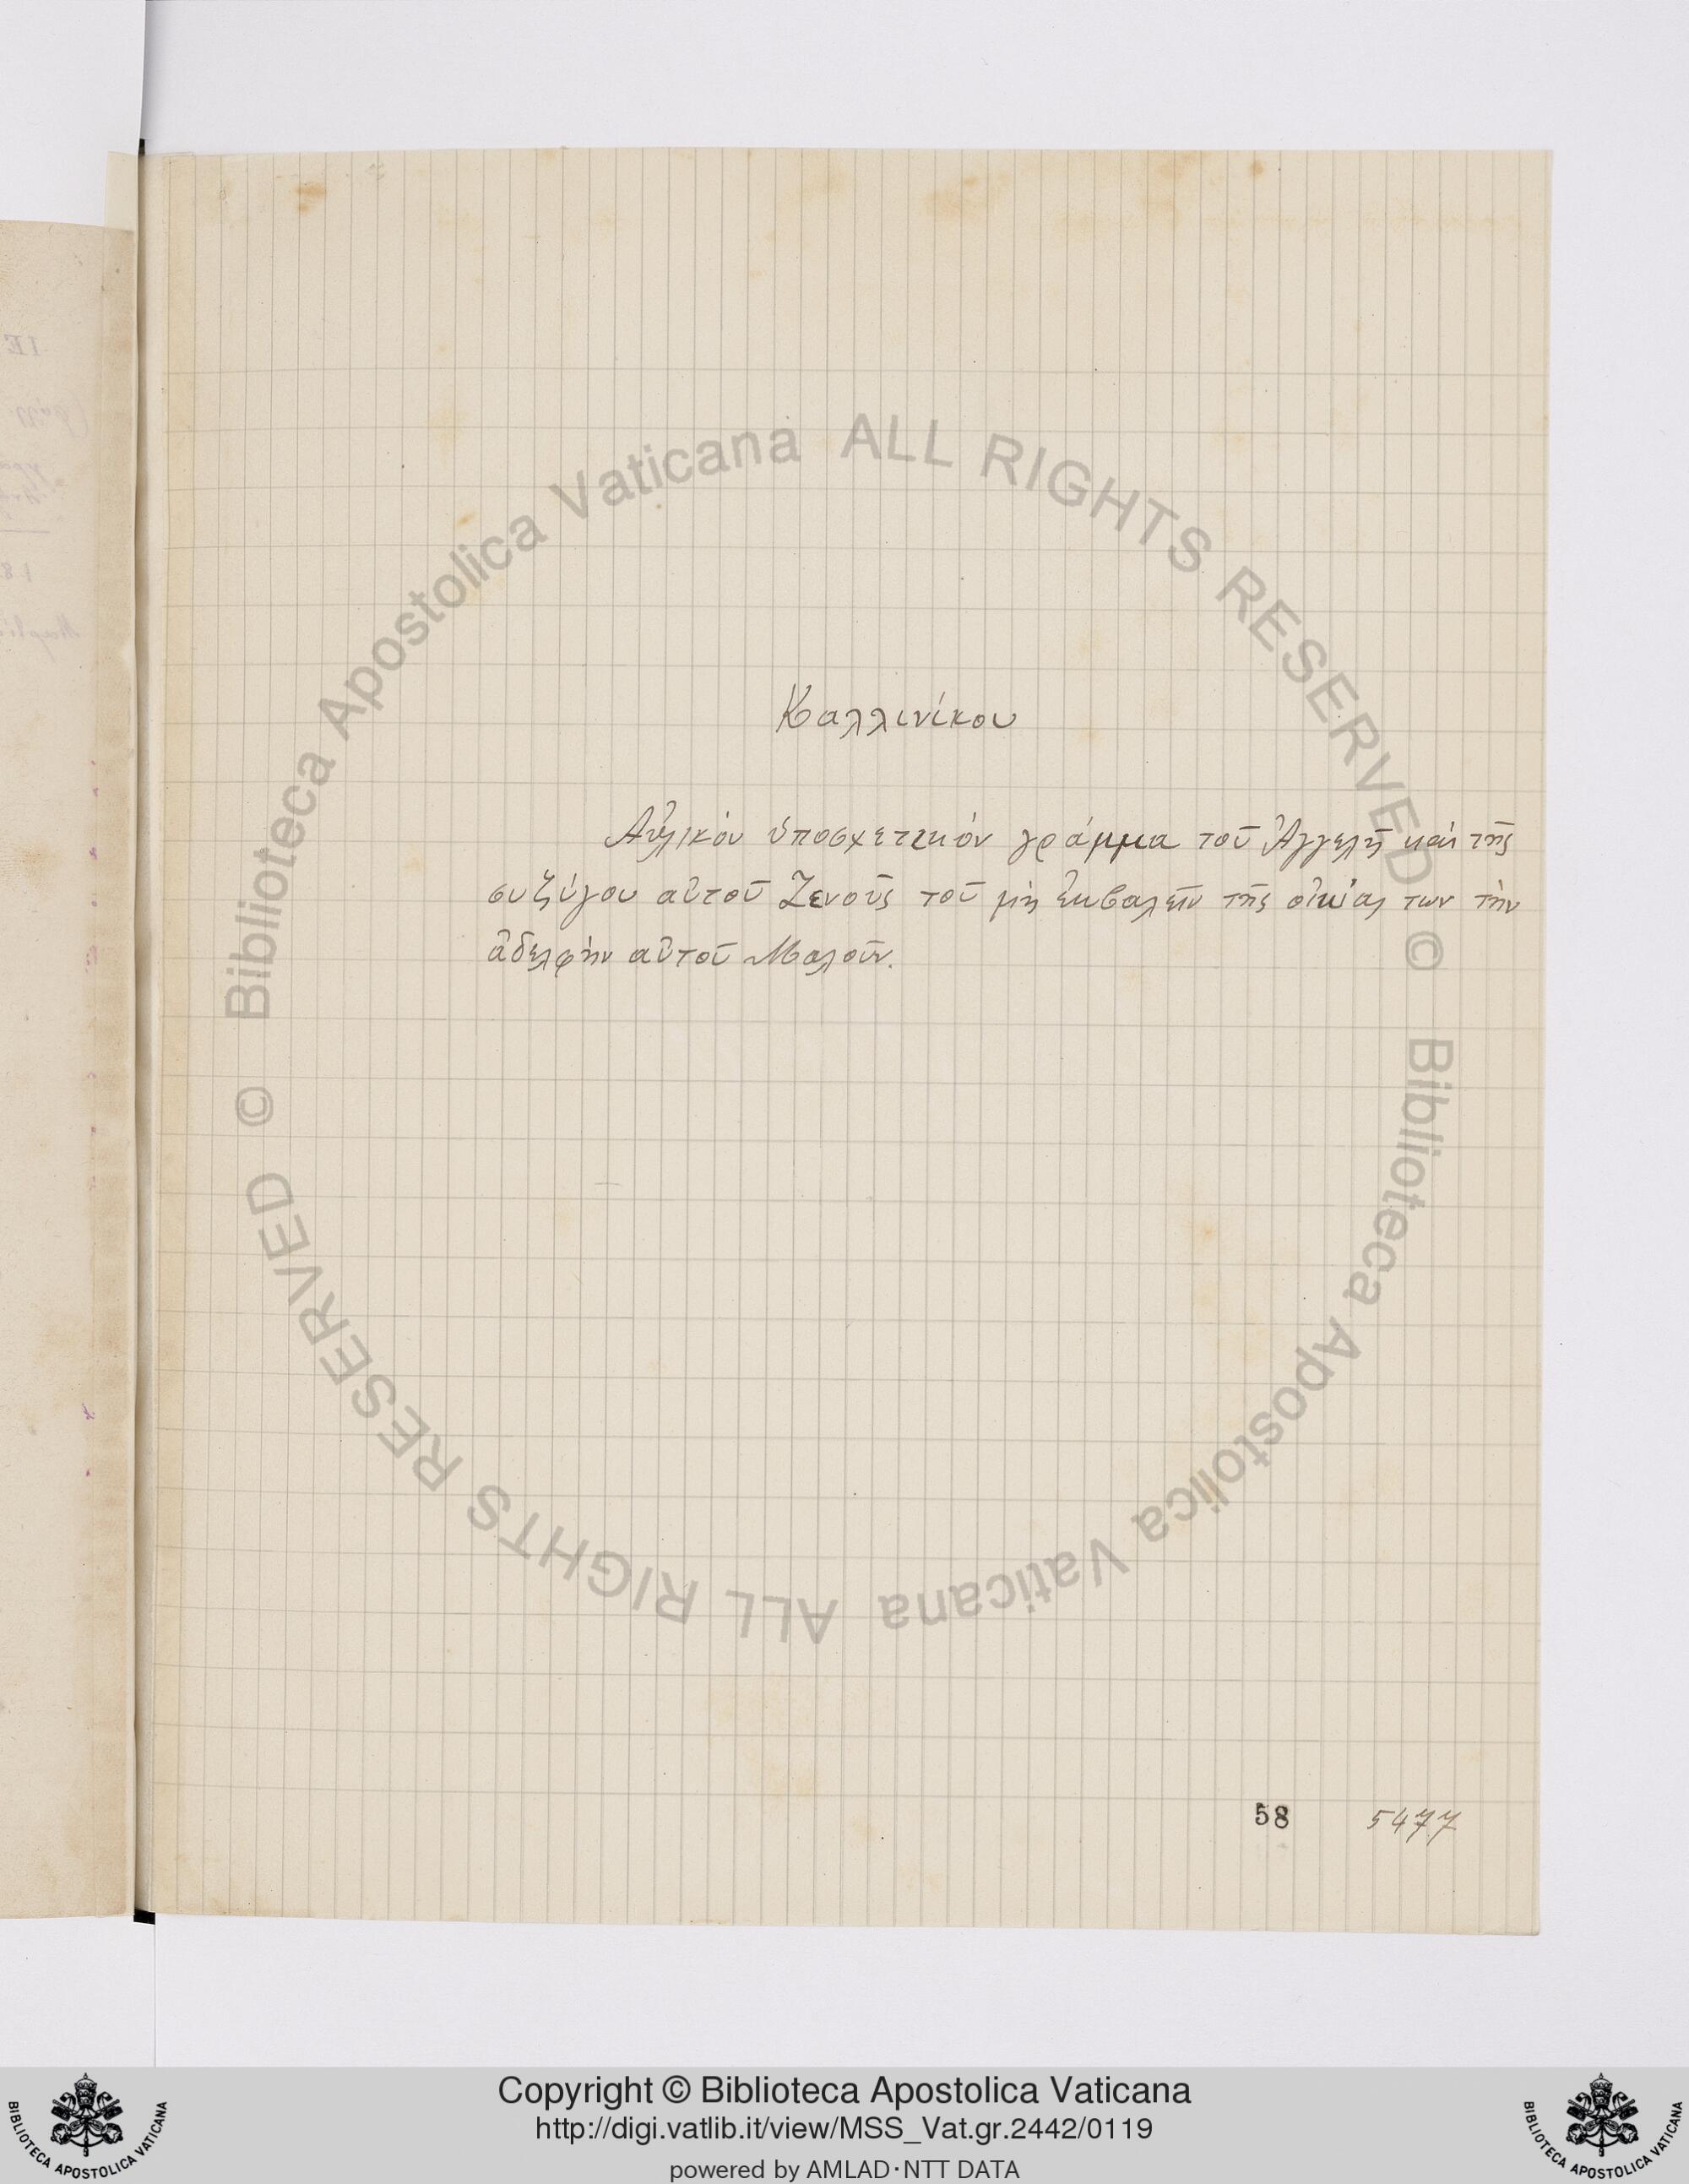 Καλλινίκου
Αὐλικὸν ὑποσχετικὸν γράμμα τοῦ Ἀγγελῆ καὶ τῆς
συζύγου αὐτοῦ Ζενοῦς τοῦ μὴ ἐκβαλεῖν τῆς οἰκίας των τὴν
ἀδελφὴν αὐτοῦ Μαλοῦν.
58 5477
Biblioteca Apostolica Vaticana ALL RIGHTS RESERVED ©
Biblioteca Apostolica Vaticana ALL RIGHTS RESERVED ©
Copyright © Biblioteca Apostolica Vaticana
http://digi.vatlib.it/view/MSS_Vat.gr.2442/0119
powered by AMLAD·NTT DATA
BIBLIOTECA APOSTOLICA VATICANA
BIBLIOTECA APOSTOLICA VATICANA